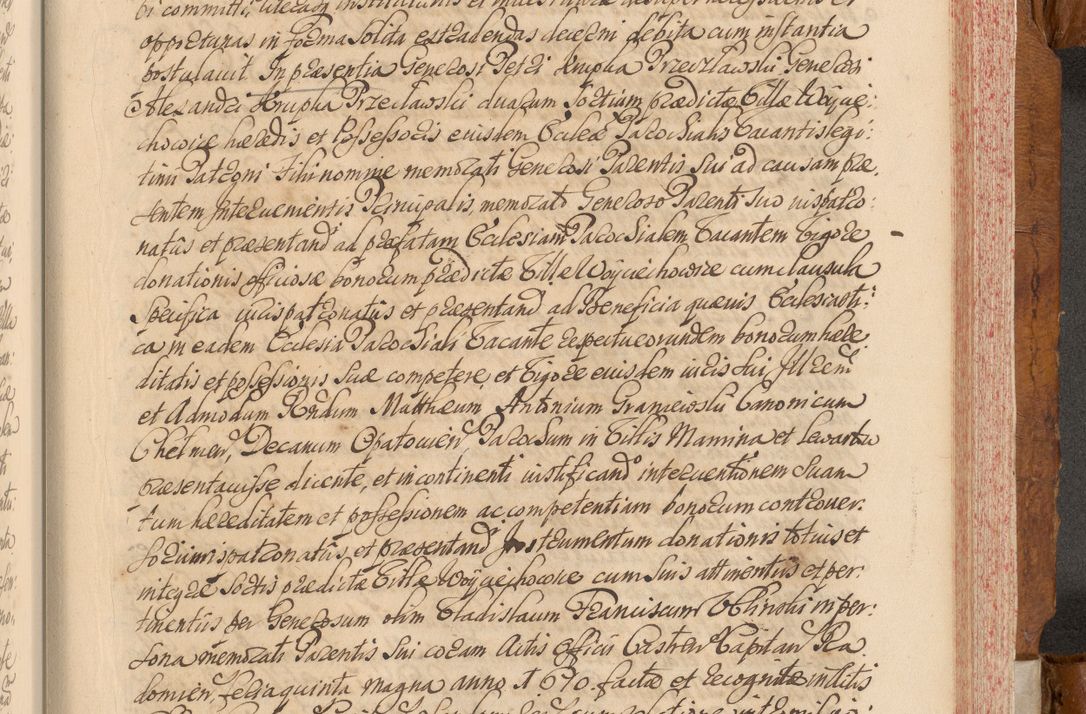 bi committi, literasq institutionis et
opportunas in forma solita extradendas decerni debita cum instantia
postulavit In praesentia Generosi Petri Krupka Przecławski Generosi
Alexandri Krupka Przecławski duarum sortium praedictae Villae Woycie:
chowice haeredis et possessoris eiusdem Eccleae Parochialis Vacantis legi:
timi Patroni Filii nomine memorati Generosi Parentis sui ad causam prae
sentem Intervenientis Principalis, memorato Generoso Parenti suo iuspatro:
natus et praesentandi ad praefatam Ecclesiam Parochialem Vacantem Vigore
donationis officiosae bonorum praedictae Villae Woyciechowice cum clausula
Specifica iurispatronatus et praesentandi ad Beneficia quaevis Ecclesiasti:
ca in eadem Ecclesia Parochiali Vacante respectu eorundem bonorum haere
ditatis et possessionis suae competere, et Vigore eiusdem iuris sui, Illrem
et Admodum Rndum Matthaeum Antonium Canonicum
Chelmen, Decanum Opatovien Parochum in Villis Mamina et
praesentavisse dicente, et in continenti iustificando interventionem suam
tum haereditatem et possessionem ac competentiam bonorum controver:
so iurispatronatus, et praesentandi Instrumentum donationis totius et
integrae sortis praedictae Villae Woyciechowice cum suis attinentiis et per:
tinentiis per Generosum olim Vladislaum Franciscum in per:
sona memorati Parentis sui coram Actis officii Castren Capitan Ra
domien, feria quinta magna anno 1690 facta et recognita inclitis